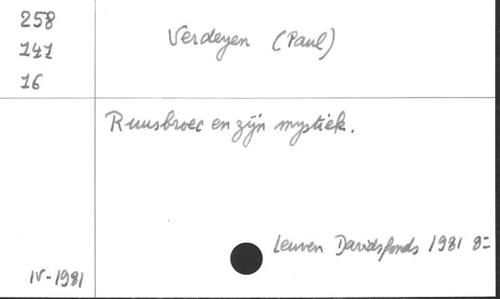 258
141
16
Verdeyen (Paul)
Ruusbroec en zijn mystiek.
Leuven Davidsfonds 1981 8=
IV-1981